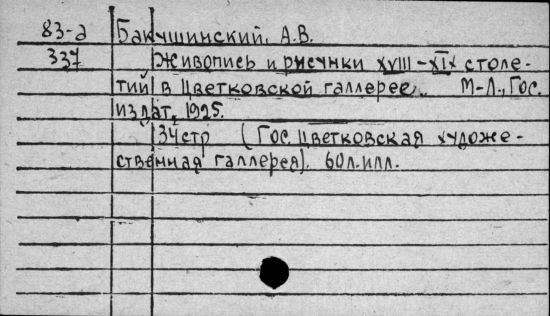 83-д Бакушинский, А.В.
337 Живопись и рисунки XVIII-XIX столе-
тий в Цветковской галлерее. М-Л., Гос.
издат, 1925.
34стр (Гос. Цветковская художе-
ственная галлерея). 60л.илл.